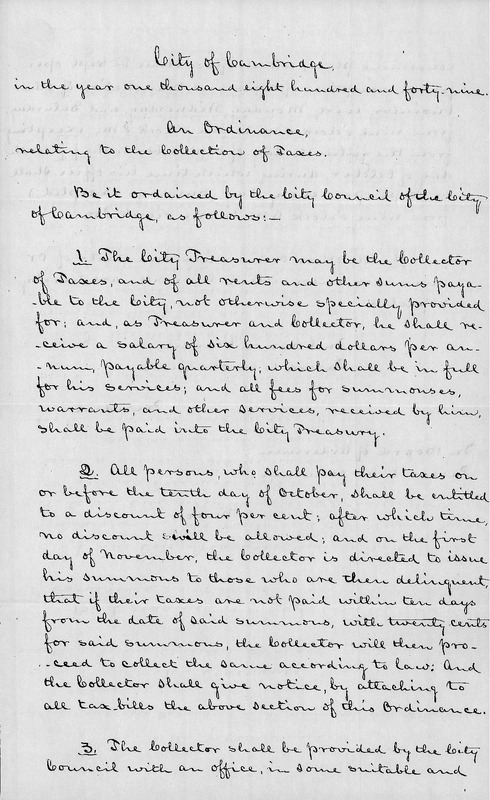 City of Cambridge.
in the year one thousand eight hundred and forty-nine.
An Ordinance,
relating to the Collection of Taxes.
Be it ordained by the City Council of the City
of Cambridge, as follows:—
1. The City Treasurer may be the Collector
of Taxes, and of all rents and other sums paya-
-ble to the City, not otherwise specially provided
for; and, as Treasurer and Collector, he shall re-
-ceive a salary of six hundred dollars per an-
-num, payable quarterly, which shall be in full
for his services; and all fees for summonses,
warrants, and other services, received by him,
shall be paid into the City Treasury.
2. All persons, who shall pay their taxes on
or before the tenth day of October, shall be entitled
to a discount of four per cent; after which time,
no discount will be allowed; and on the first
day of November, the Collector is directed to issue
his summons to those who are then delinquent,
that if their taxes are not paid within ten days
from the date of said summons, with twenty cents
for said summons, the Collector will then pro-
-ceed to collect the same according to law: And
the Collector shall give notice, by attaching to
all tax-bills the above section of this Ordinance.
3. The Collector shall be provided by the City
Council with an office, in some suitable and